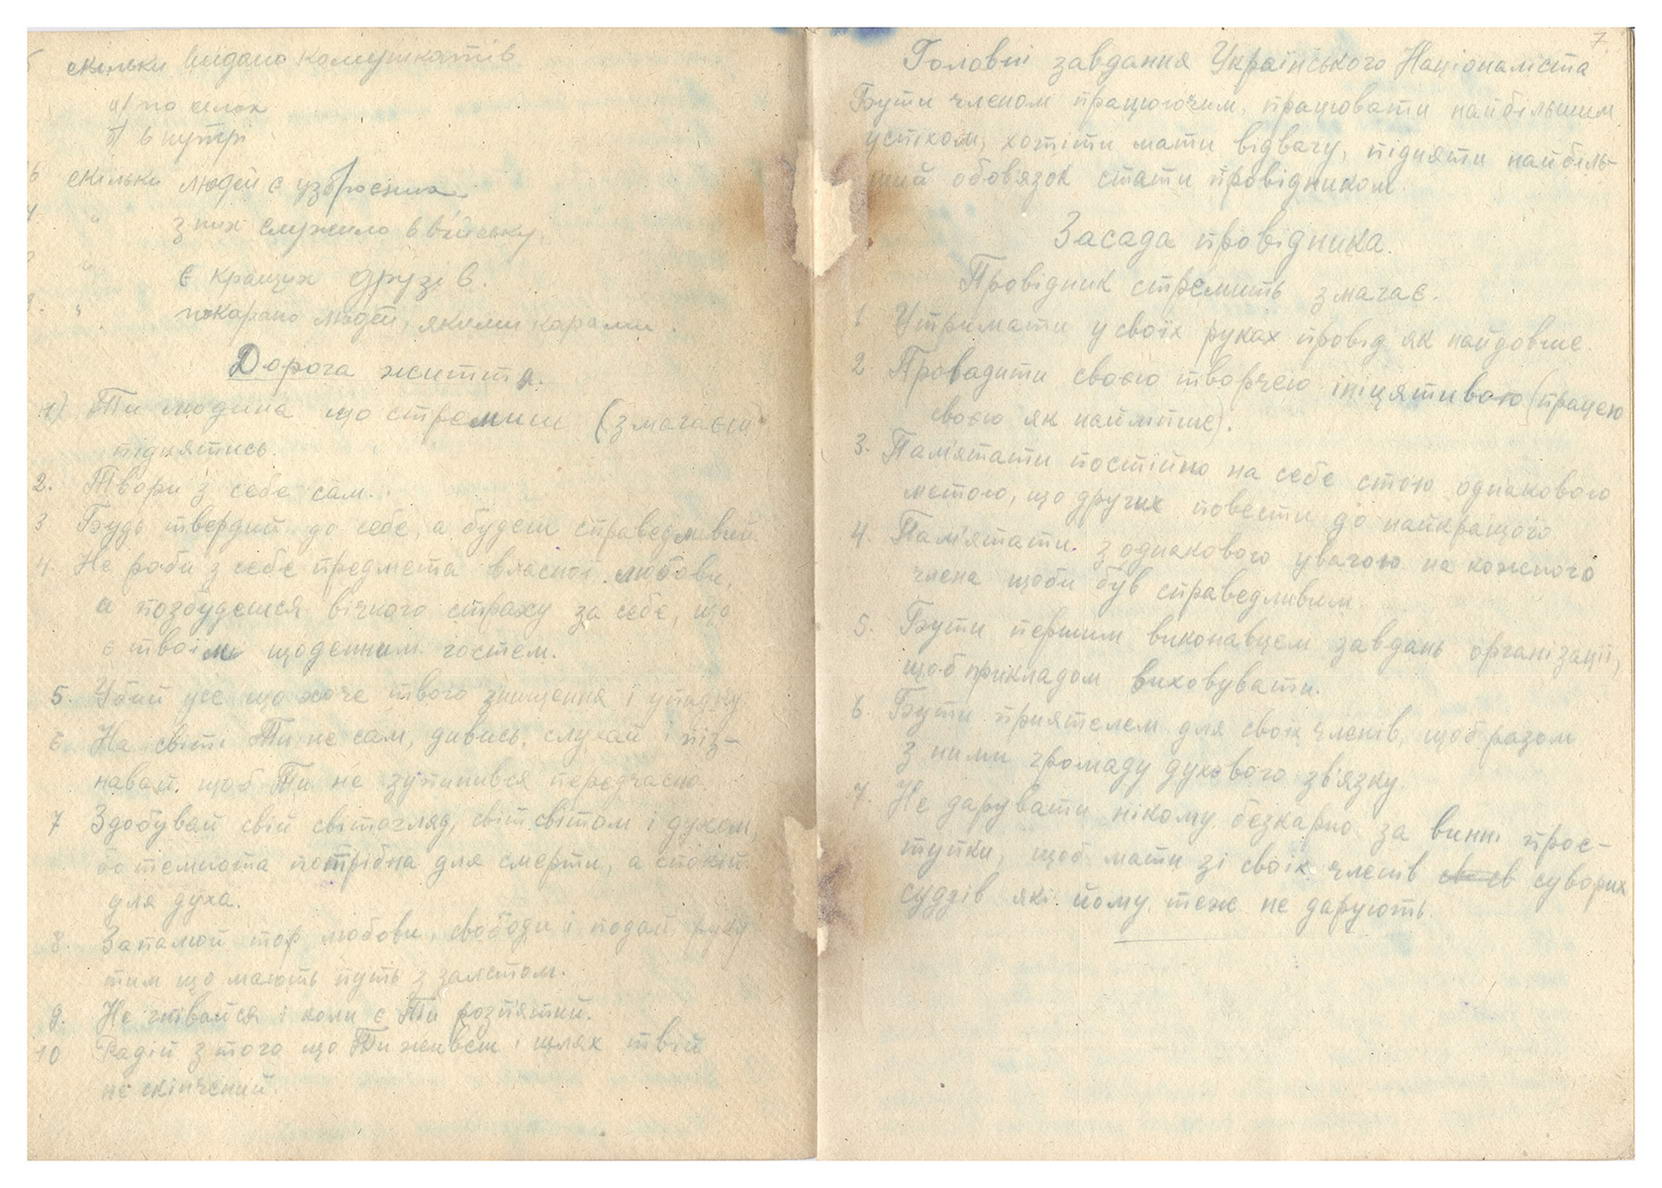 скільки видано комунікатів
а) по селах
б) внутрі
6 скільки людей є узброєних
7. " з них служило в війську.
" є кращих друзів.
" покарано людей, якими карами.
Дорога життя.
1) Ти людина що стремиш (змагаєш)
піднятись.
2. Твори з себе сам.
3 Будь твердий до себе, а будеш справедливий
4. Не роби з себе предмета власної любови,
а позбудешся вічного страху за себе, що
є твоїм щоденним гостем.
5. Убий усе що хоче твого знищення і упадку
6 На світі Ти не сам, дивись, слухай і піз-
навай, щоб Ти не зупинився передчасно.
7 Здобувай свій світогляд, світ світом і духом,
бо темнота потрібна для смерти, а спокій
для духа.
8. Запалюй любови, свободи і подай руку
тим що мають путь з
9. Не гнівайся і коли є Ти розпятий.
10 Радій з того що Ти живеш і шлях твій
не скінчений.
7.
Головні завдання Українського Націоналіста
Бути членом працюючим, працювати найбільшим
успіхом, хотіти мати відвагу, підняти найбіль-
ший обовязок стати провідником.
Засада провідника.
Провідник стремить змагає.
1 Утримати у своїх руках провід як найдовше.
2. Провадити своєю творчею ініціятивою (працею
своєю як найліпше).
3. Памятати постійно на себе стою однакового
метою, що других повести до найкращого
4. Памятати з однакового увагою на кожного
члена щоби був справедливим
5. Бути першим виконавцем завдань організації,
щоб прикладом виховувати.
6. Бути приятелем для своїх членів, щоб разом
з ними громаду духового звязку.
7. Не дарувати нікому безкарно за винні прос-
тупки, щоб мати зі своїх членів суворих
суддів які йому теж не дарують.